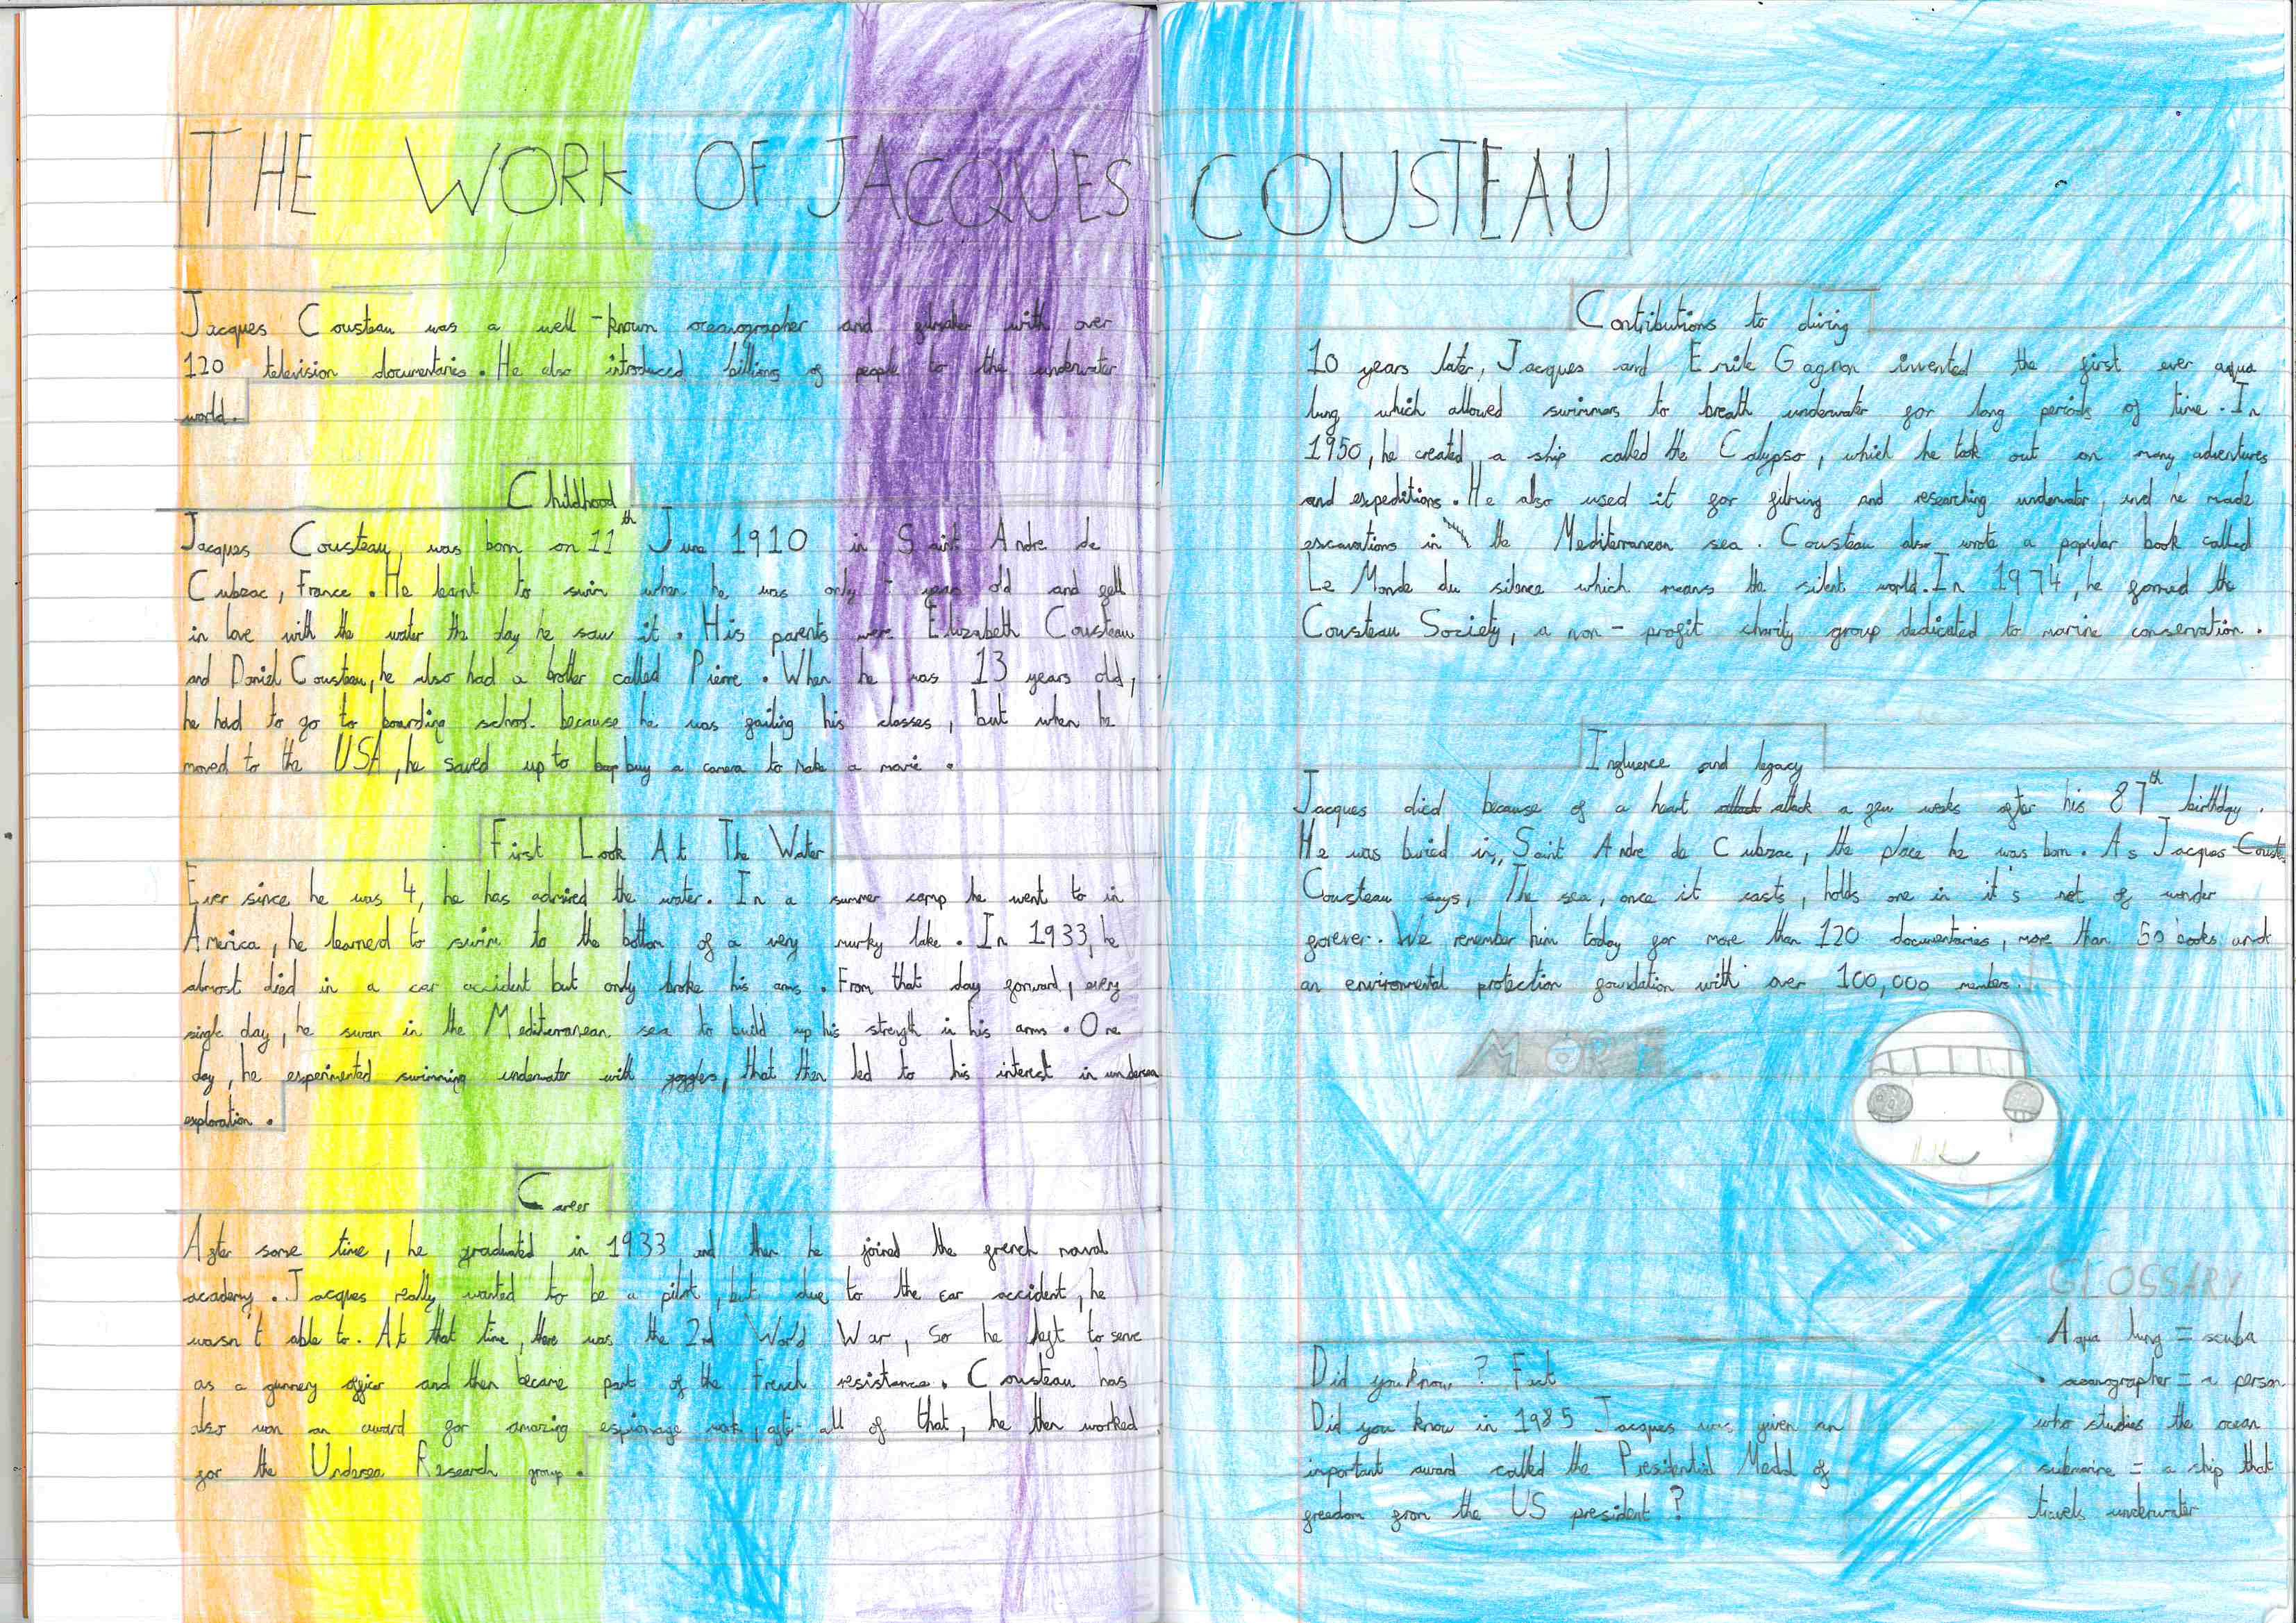 THE WORK OF JACQUES COUSTEAU
Jacques Cousteau was a well-known oceanographer and filmaker with over
120 television documentaries. He also introduced billions of people to the underwater
world.
Childhood
Jacques Cousteau, was born on 11th June 1910 in Saint Andre de
Cubzac, France. He learnt to swim when he was only years old and fell
in love with the water the day he saw it. His parents were Elizabeth Cousteau
and Daniel Cousteau, he also had a brother called Pierre. When he was 13 years old,
he had to go to boarding school because he was failing his classes, but when he
moved to the USA, he saved up to buy a camera to make a movie.
First Look At The Water
Ever since he was 4, he has admired the water. In a summer camp he went to in
America, he learned to swim to the bottom of a very murky lake. In 1933, he
almost died in a car accident but only broke his arms. From that day forward, every
single day, he swam in the Mediterranean sea to build up his strength in his arms. One
day, he experimented swimming underwater with goggles, that then led to his interest in undersea
exploration.
Career
After some time, he graduated in 1933 and then he joined the french naval
academy. Jacques really wanted to be a pilot, but due to the car accident, he
wasn't able to. At that time, there was the 2nd World War, so he left to serve
as a gunnery officer and then became part of the French resistance. Cousteau has
also won an award for amazing espionage work, after all of that, he then worked
for the Undersea Research group.
Contributions to diving
10 years later, Jacques and Emile Gagnon invented the first ever aqua
lung which allowed swimmers to breath underwater for long periods of time. In
1950, he created a ship called the Calypso, which he took out on many adventures
and expeditions. He also used it for filming and researching underwater, and he made
excavations in the Mediterranean sea. Cousteau also wrote a popular book called
Le Monde du silence which means the silent world. In 1974, he formed the
Cousteau Society, a non-profit charity group dedicated to marine conservation.
Influence and legacy
Jacques died because of a heart attack a few weeks after his 87th birthday.
He was buried in, Saint Andre de Cubzac, the place he was born. As Jacques
Cousteau says, The sea, once it casts, holds one in it's net of wonder
forever. We remember him today for more than 120 documentaries, more than 50 books and
an environmental protection foundation with over 100,000 members.
Did you know? Fact
Did you know in 1985 Jacques was given an
important award called the Presidential Medal of
freedom from the US president?
GLOSSARY
Aqua lung = scuba
• oceanographer = a person
who studies the ocean
submarine = a ship that
travels underwater